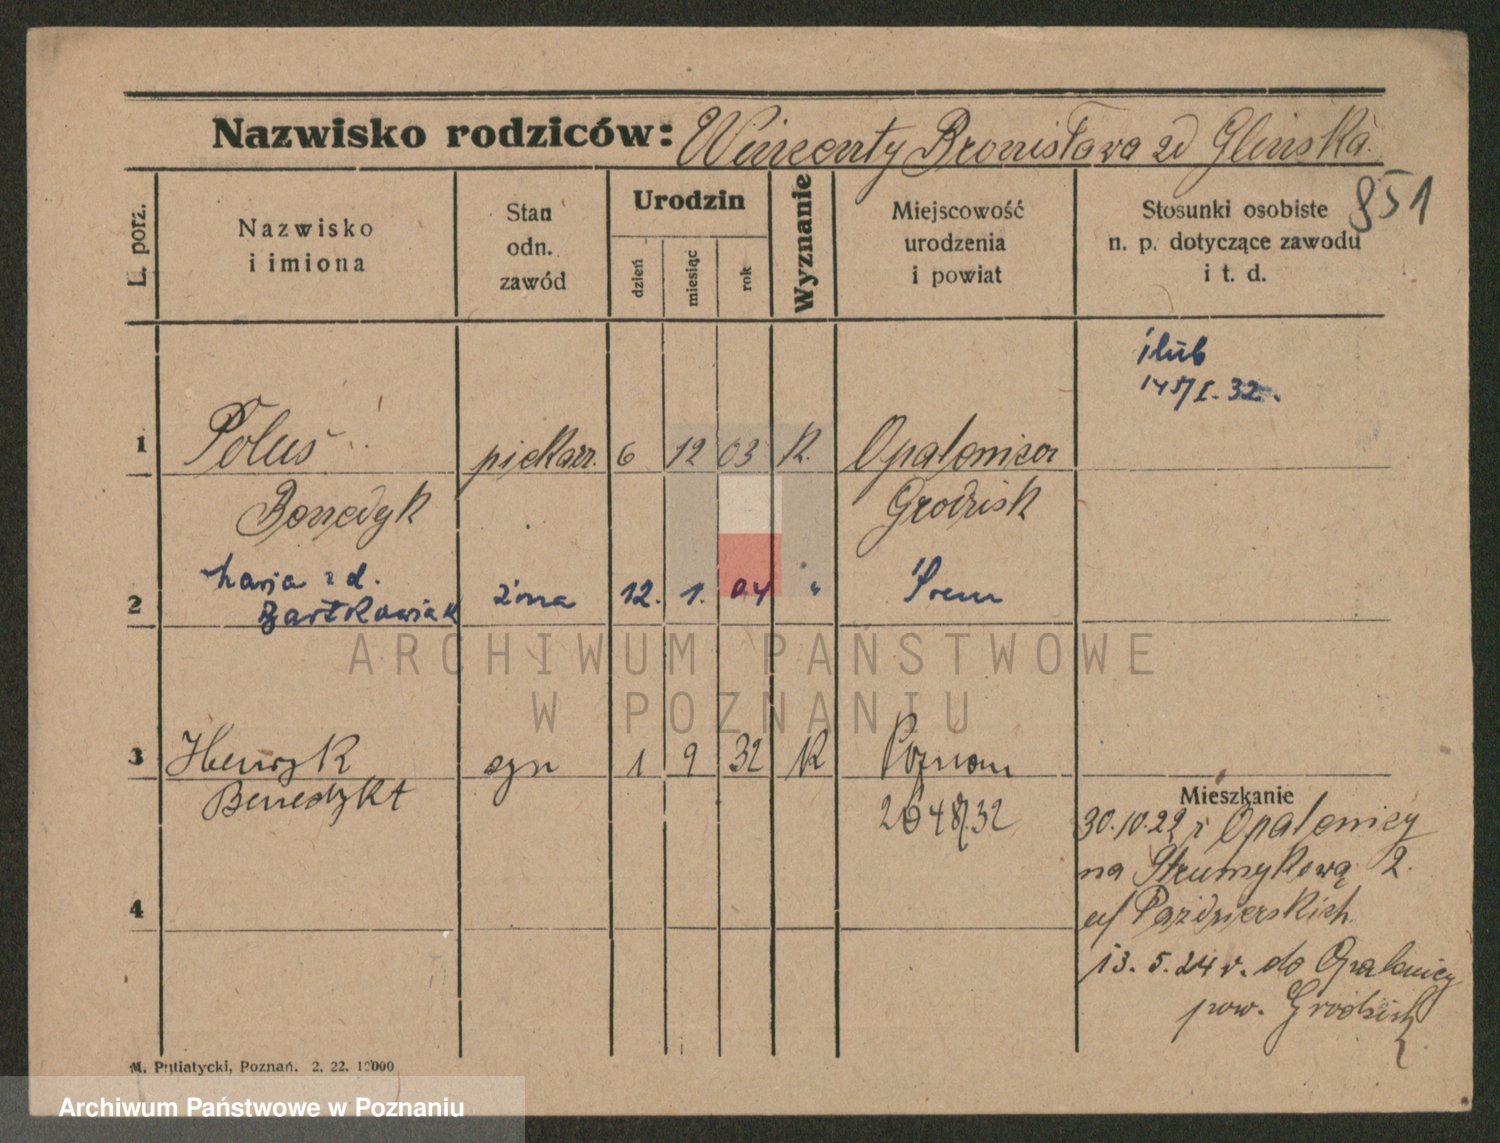 Nazwisko rodziców: Wincenty Bronisława zd Glinska.
851
L. porz.
Nazwisko
i imiona
Stan
odn.
zawód
Urodzin
dzień
miesiąc
rok
Wyznanie
Miejscowość
urodzenia
i powiat
Stosunki osobiste
n. p. dotyczące zawodu
i t. d.
ślub
I. 32.
1 Poluś piekarz. 6 12 03 K. Opalenica
Benedyk Grodzisk
2 Marja z d. żona 12. 1. 04 " Śrem
Bartkowiak
3 Henryk syn 1 9 32 K Poznań
Benedykt
Mieszkanie
30.10.22 z Opalenicy
na Strumykową 2.
u/ Paździerskich
13. 5. 24 r. do Opalenicy
pow. Grodzisk
4
M. Putiatycki, Poznań. 2. 22. 10000
ARCHIWUM PAŃSTWOWE
W POZNANIU
Archiwum Państwowe w Poznaniu